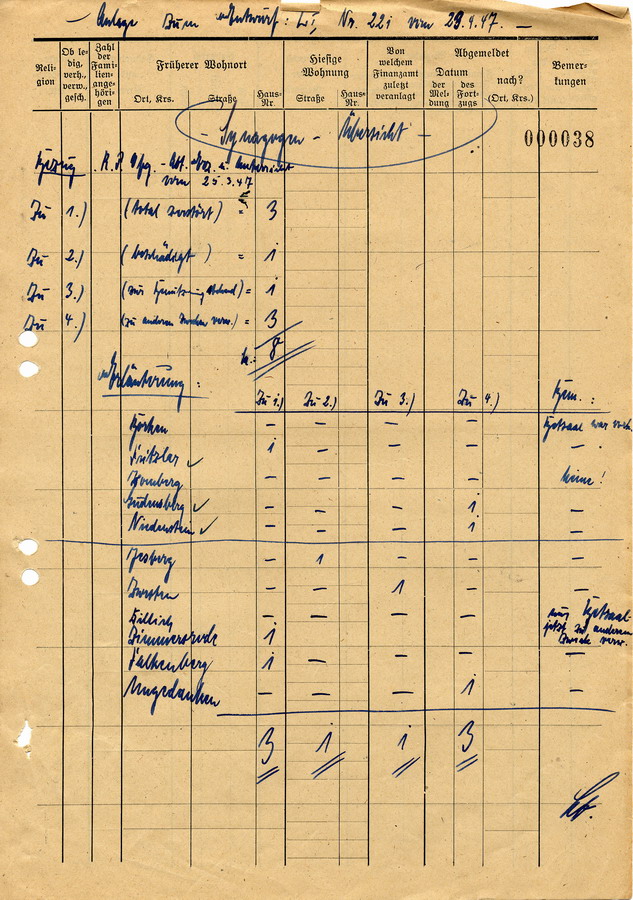 Anlage zum Entwurf: LI, Nr. 221 vom 29.4.47.
Reli-
gion
Ob le-
dig,
verh.,
verw.,
gesch.
Zahl
der
Famili-
enange-
hörigen
Früherer Wohnort
Ort, Krs.
Straße
Haus-
Nr.
Hiesige
Wohnung
Straße
Haus-
Nr.
Von
welchem
Finanzamt
zuletzt
veranlagt
Abgemeldet
Datum
der
Mel-
dung
des
Fort-
zugs
nach?
(Ort, Krs.)
Bemer-
kungen
- Synagogen - Übersicht -
000038
Bezug
vom 25.3.47
Zu 1.) (total zerstört) = 3
Zu 2.) (beschädigt) = 1
Zu 3.) = 1
Zu 4.) (zu anderen Zwecken verw.) = 3
8
Erläuterung:
Zu 1.) Zu 2.) Zu 3.) Zu 4.) Bem.:
Borken - - - - Betsaal war
Fritzlar ✓ 1 - - - -
Homberg - - - - keine!
Gudensberg ✓ - - - 1 -
Niedenstein ✓ - - - 1 -
Jesberg - 1 - - -
Zwesten - - 1 - -
- - - - nur Betsaal
jetzt zu anderem
Zweck verw.
Zimmersrode 1 - - - -
Falkenberg 1 - - - -
Ungedanken - - - 1 -
3 1 1 3